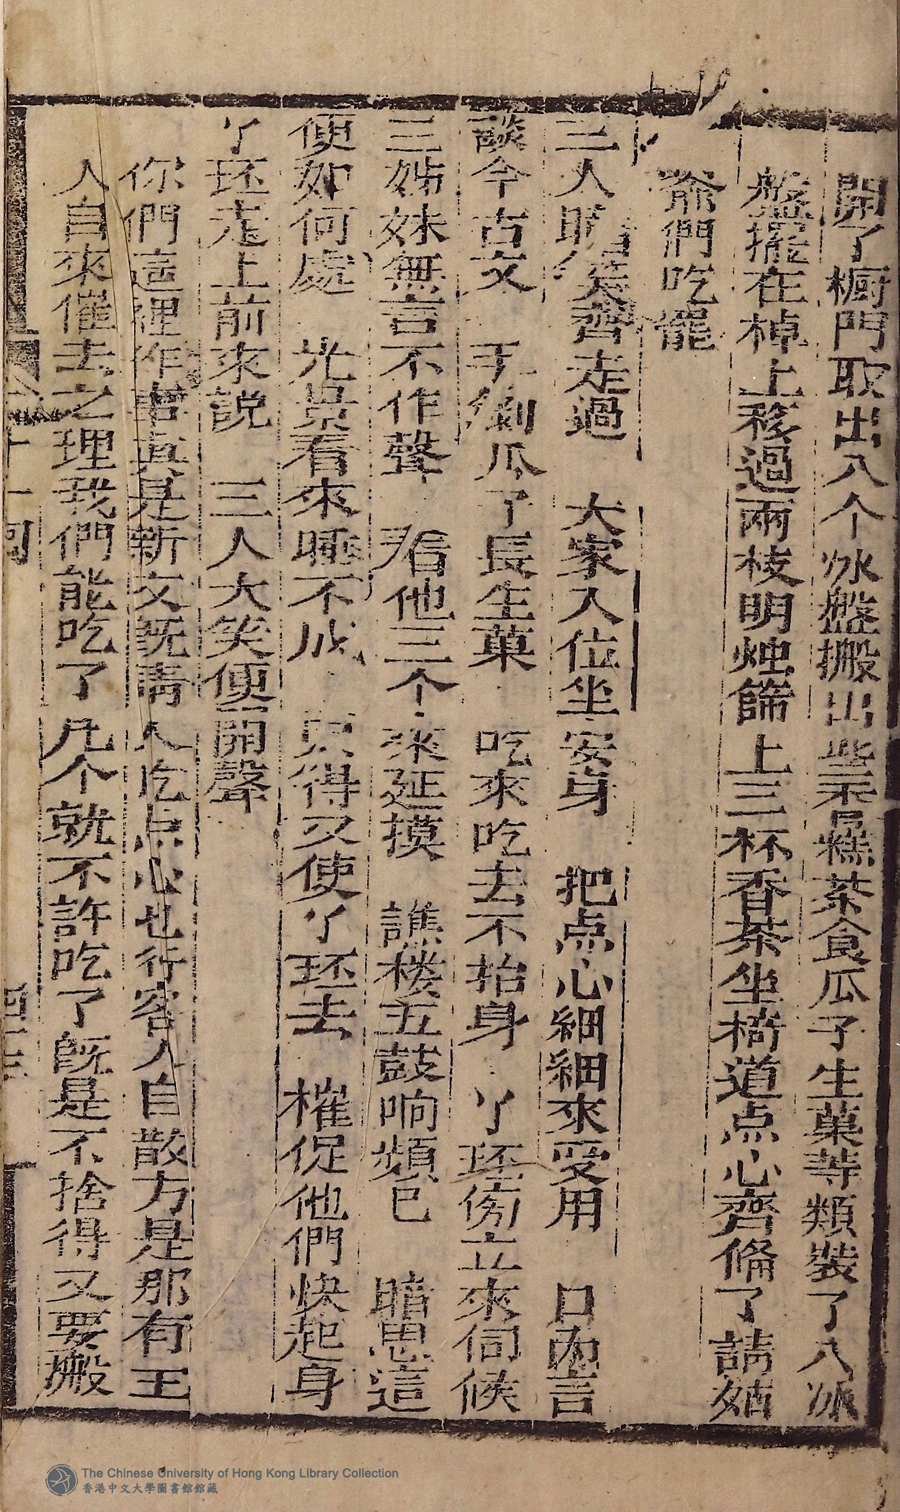 開了橱門取出八个氷盤搬出些雲糕茶食瓜子生菓等類裝了八氷
盤擺在棹上移過兩枝明燭篩上三杯香茶坐椅道点心齊俻了請姑
爺們吃罷
三人聽笑齊走過　大家入位坐安身　把点心細細來受用　口內言
談今古文　手剝瓜子長生菓　吃來吃去不抬身　丫环傍立來伺候
三姊妹無言不作聲　看他三个來延摸　譙楼五鼓响頻巳　暗思這
便如何處　光景看來睡不成　只得又使丫环去　催促他們快起身
丫环走上前來說　三人大笑便開聲
你們這裡作事真是新文旣請人吃点心也行客人自散方是那有王
人自來催去之理我們能吃了几个就不許吃了旣是不捨得又要搬
十一囘
The Chinese University of Hong Kong Library Collection
香港中文大學圖書館館藏